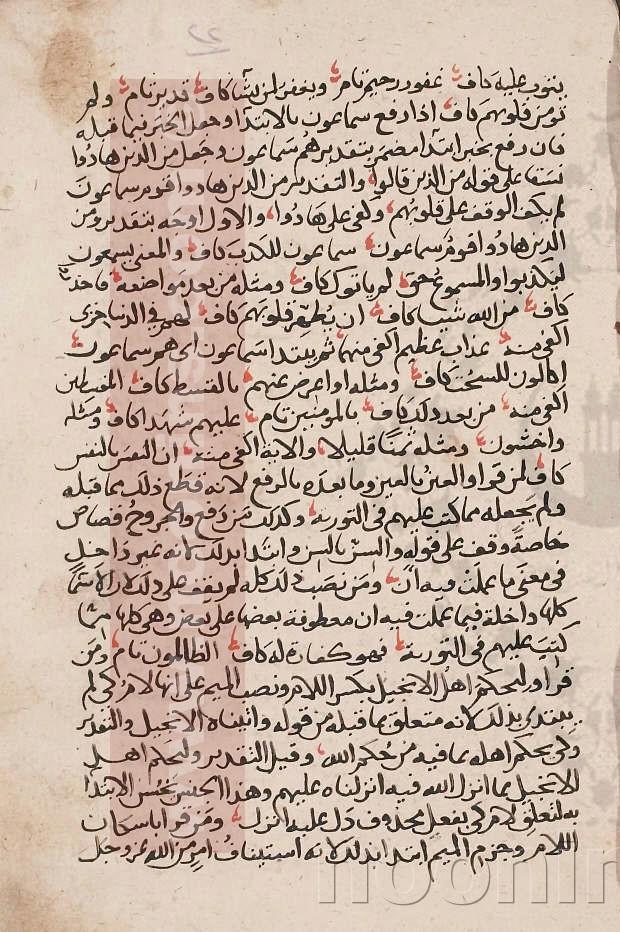 ٢٢
يتوب عليه كاف غفور رحيم تام ويغفر لمن يشا كاف قدير تام ولم
تومن قلوبهم كاف اذا رفع سماعون بالابتدا وجعل الخبر فيما قبله
فان رفع بخبر ابتدا مضمر بتقدير هم سماعون وجعل من الذين هادوا
نسقا على قوله من الذين قالوا والتقدير من الذين هادوا قوم سماعون
لم يكف الوقف على قلوبهم وكفى على هادوا والاول اوجه بتقدير ومن
الذين هادوا قوم سماعون سماعون للكذب كاف والمعنى يسمعون
ليكذبوا والمسموع حق لم ياتوك كاف ومثله من بعد مواضعه فاحذروا
كاف من الله شيا كاف ان يطهر قلوبهم كاف لهم في الدنيا خزي
اكفى منه عذاب عظيم اكفى منهما ثم يبتدا سماعون اي هم سماعون
اكالون للسحت كاف ومثله او اعرض عنهم بالقسط كاف المقسطين
اكفى منه من بعد ذلك كاف بالمومنين تام عليه شهدا كاف ومثله
واخشون ومثله ثمنا قليلا والاية اكفى منه ان النفس بالنفس
كاف لمن قرا والعين بالعين وما بعده بالرفع لانه قطع ذلك مما قبله
ولم يجعله مما كتب عليهم في التورية وكذلك من رفع والجروح قصاص
خاصة وقف على قوله والسن بالسن وابتدا بذلك لانه غير داخل
في معنى ما عملت فيه ان ومن نصب ذلك كله لم يقف على ذلك لان الاشيا
كلها داخلة فيما عملت فيه ان معطوفة بعضها على بعض وهي كلها مما
كتب عليهم في التورية فهو كفارة له كاف الظالمون تام ومن
قرا وليحكم اهل الانجيل بكسر اللام ونصب الميم على انها لام كي لم
يبتدي بذلك لانه متعلق بما قبله من قوله واتيناه الانجيل والتقدير
وكي يحكم اهله بما فيه من حكم الله وقيل التقدير وليحكم اهل
الانجيل بما انزل الله فيه انزلناه عليهم وهذا الحسن يحسن الابتدا
به لتعلق لام كي بفعل محذوف دل عليه انزل ومن قرا باسكان
اللام وجزم الميم ابتدا بذلك لانه استيناف امر من الله عز وجل
noorin